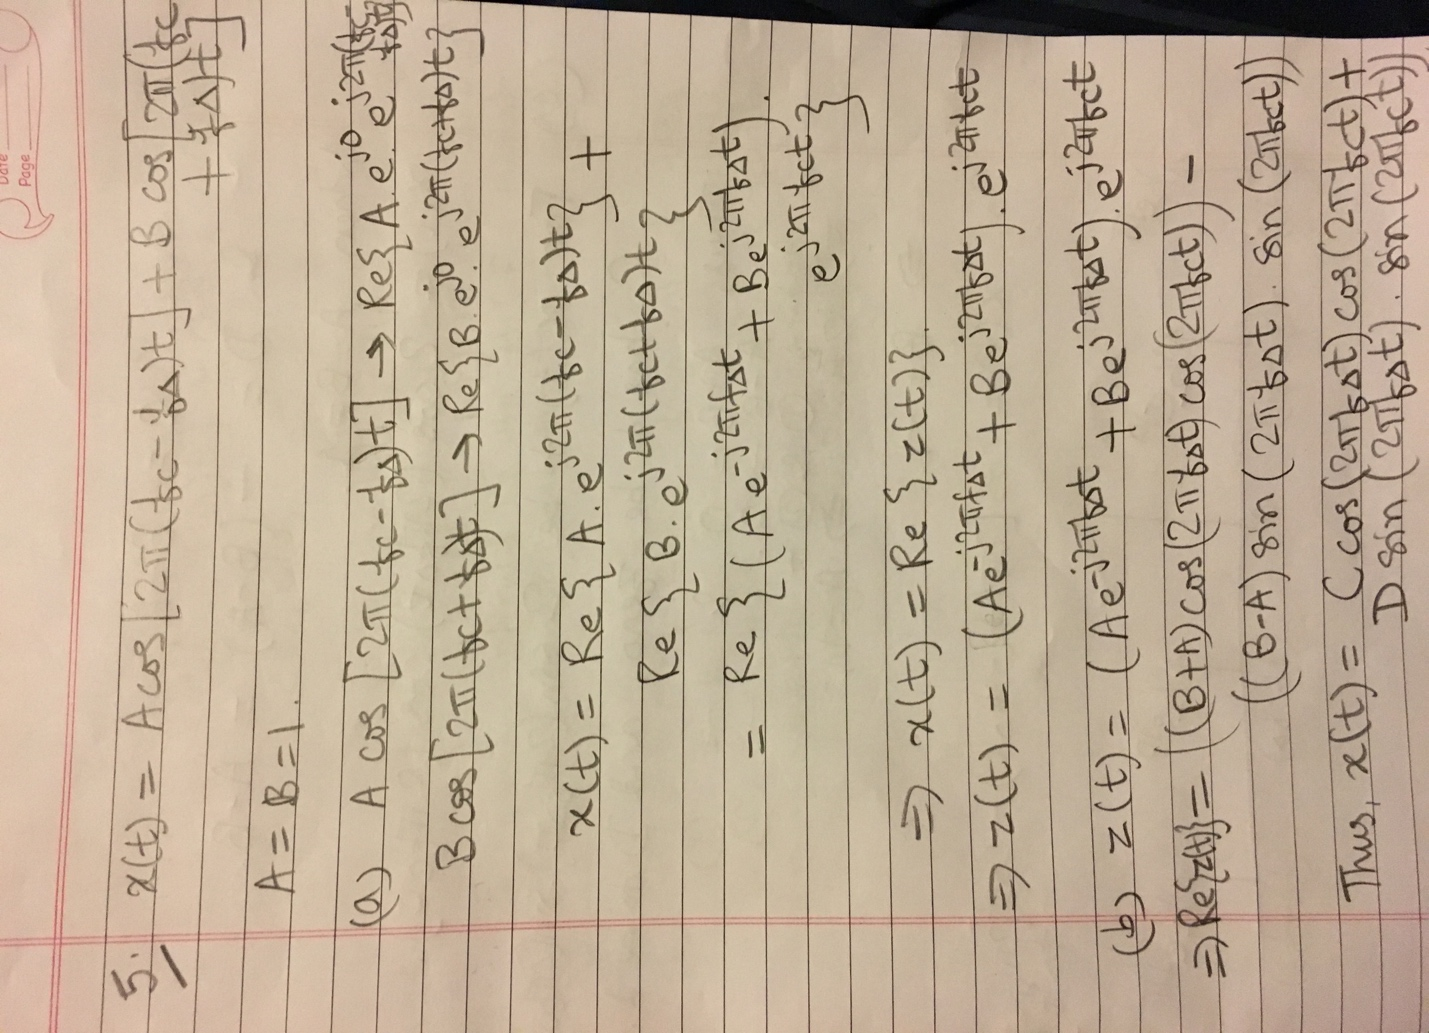 Date
Page
5. x(t) = A cos[2π(fc-fΔ)t] + B cos[2π(fc
+fΔ)t]
A = B = 1.
(a) A cos[2π(fc-fΔ)t] → Re{A.e^j0.e^j2π(fc-fΔ)t}
B cos[2π(fc+fΔ)t] → Re{B.e^j0.e^j2π(fc+fΔ)t}
x(t) = Re{A.e^j2π(fc-fΔ)t} +
Re{B.e^j2π(fc+fΔ)t}
= Re{(Ae^-j2πfΔt + Be^j2πfΔt).
e^j2πfct}
⇒ x(t) = Re{z(t)}.
⇒ z(t) = (Ae^-j2πfΔt + Be^j2πfΔt).e^j2πfct
(b) z(t) = (Ae^-j2πfΔt + Be^j2πfΔt).e^j2πfct
⇒ Re{z(t)} = ((B+A)cos(2πfΔt)cos(2πfct)) -
((B-A)sin(2πfΔt).sin(2πfct))
Thus, x(t) = C cos(2πfΔt)cos(2πfct) +
D sin(2πfΔt).sin(2πfct))